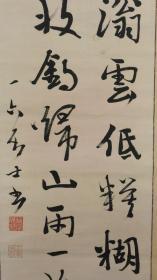 滃雲低糢糊
收釣歸山雨一
一六居士書